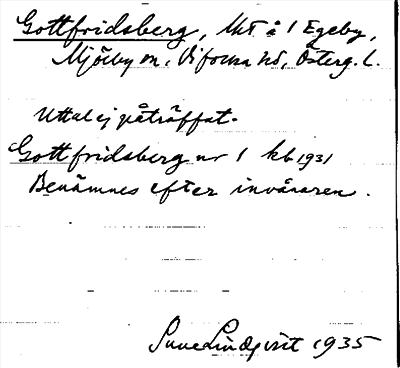 Gottfridsberg, lht å 1 Egeby,
Mjölby sn. Vifolka hd, Österg. l.
Uttal ej påträffat.
Gottfridsberg nr 1 kb 1931
Benämnes efter invånaren.
Sune Lindqvist 1935